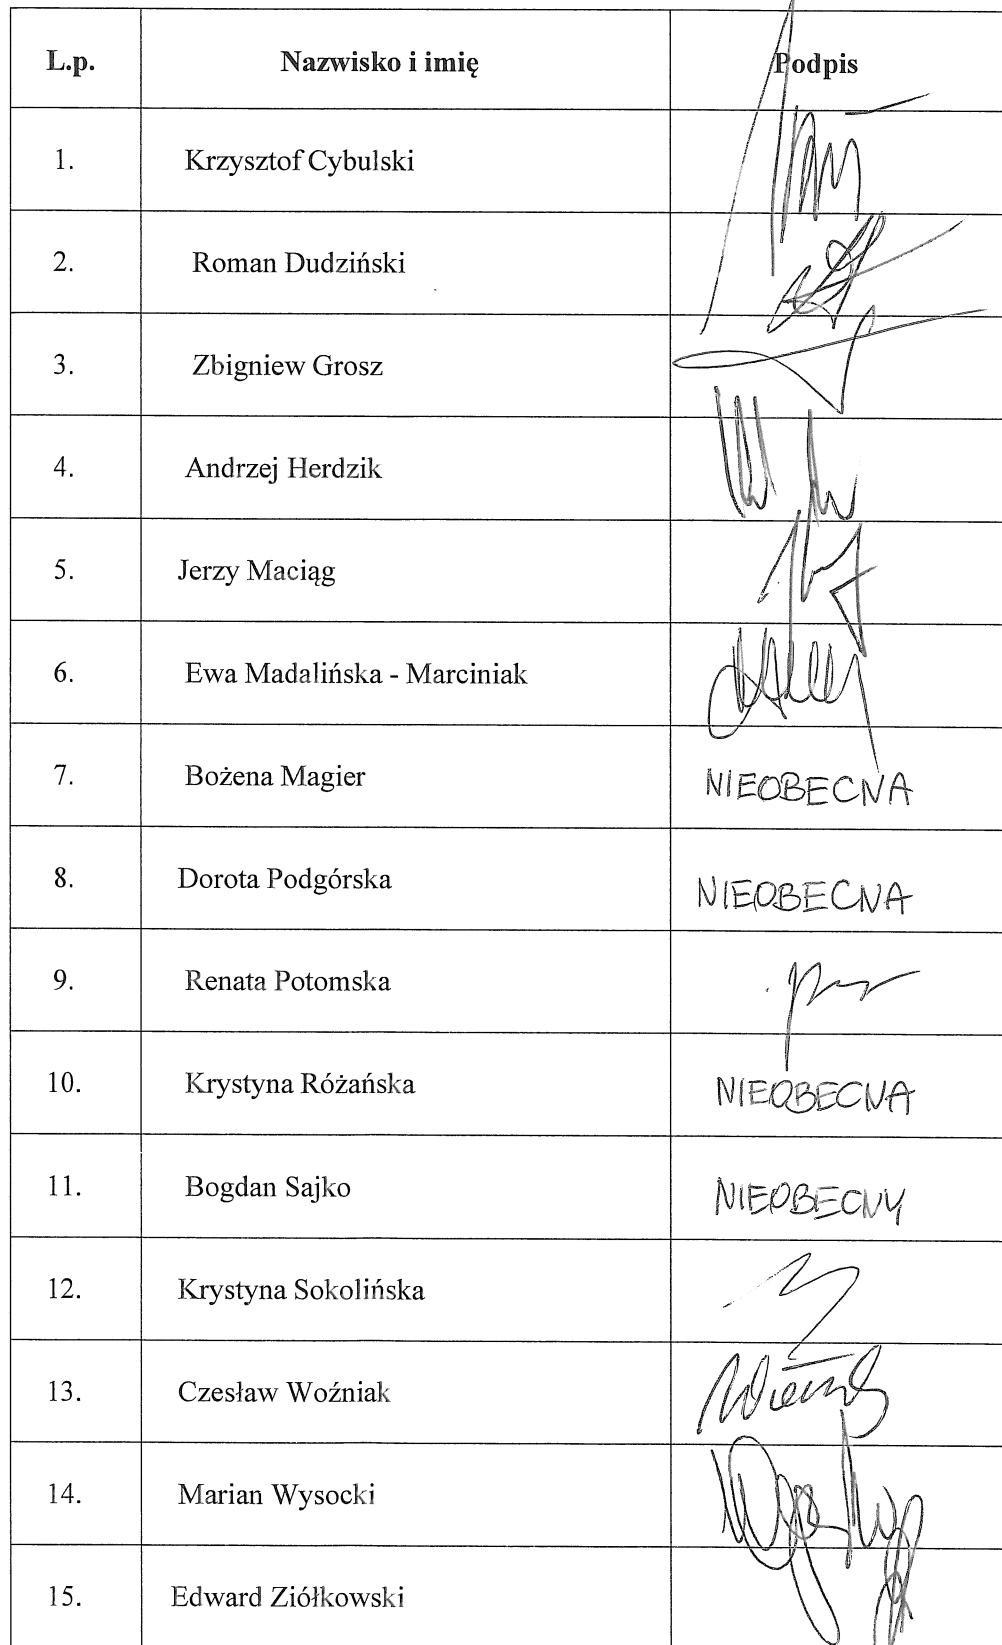 L.p. Nazwisko i imię Podpis
1. Krzysztof Cybulski
2. Roman Dudziński
3. Zbigniew Grosz
4. Andrzej Herdzik
5. Jerzy Maciąg
6. Ewa Madalińska - Marciniak
7. Bożena Magier NIEOBECNA
8. Dorota Podgórska NIEOBECNA
9. Renata Potomska
10. Krystyna Różańska NIEOBECNA
11. Bogdan Sajko NIEOBECNY
12. Krystyna Sokolińska
13. Czesław Woźniak
14. Marian Wysocki
15. Edward Ziółkowski